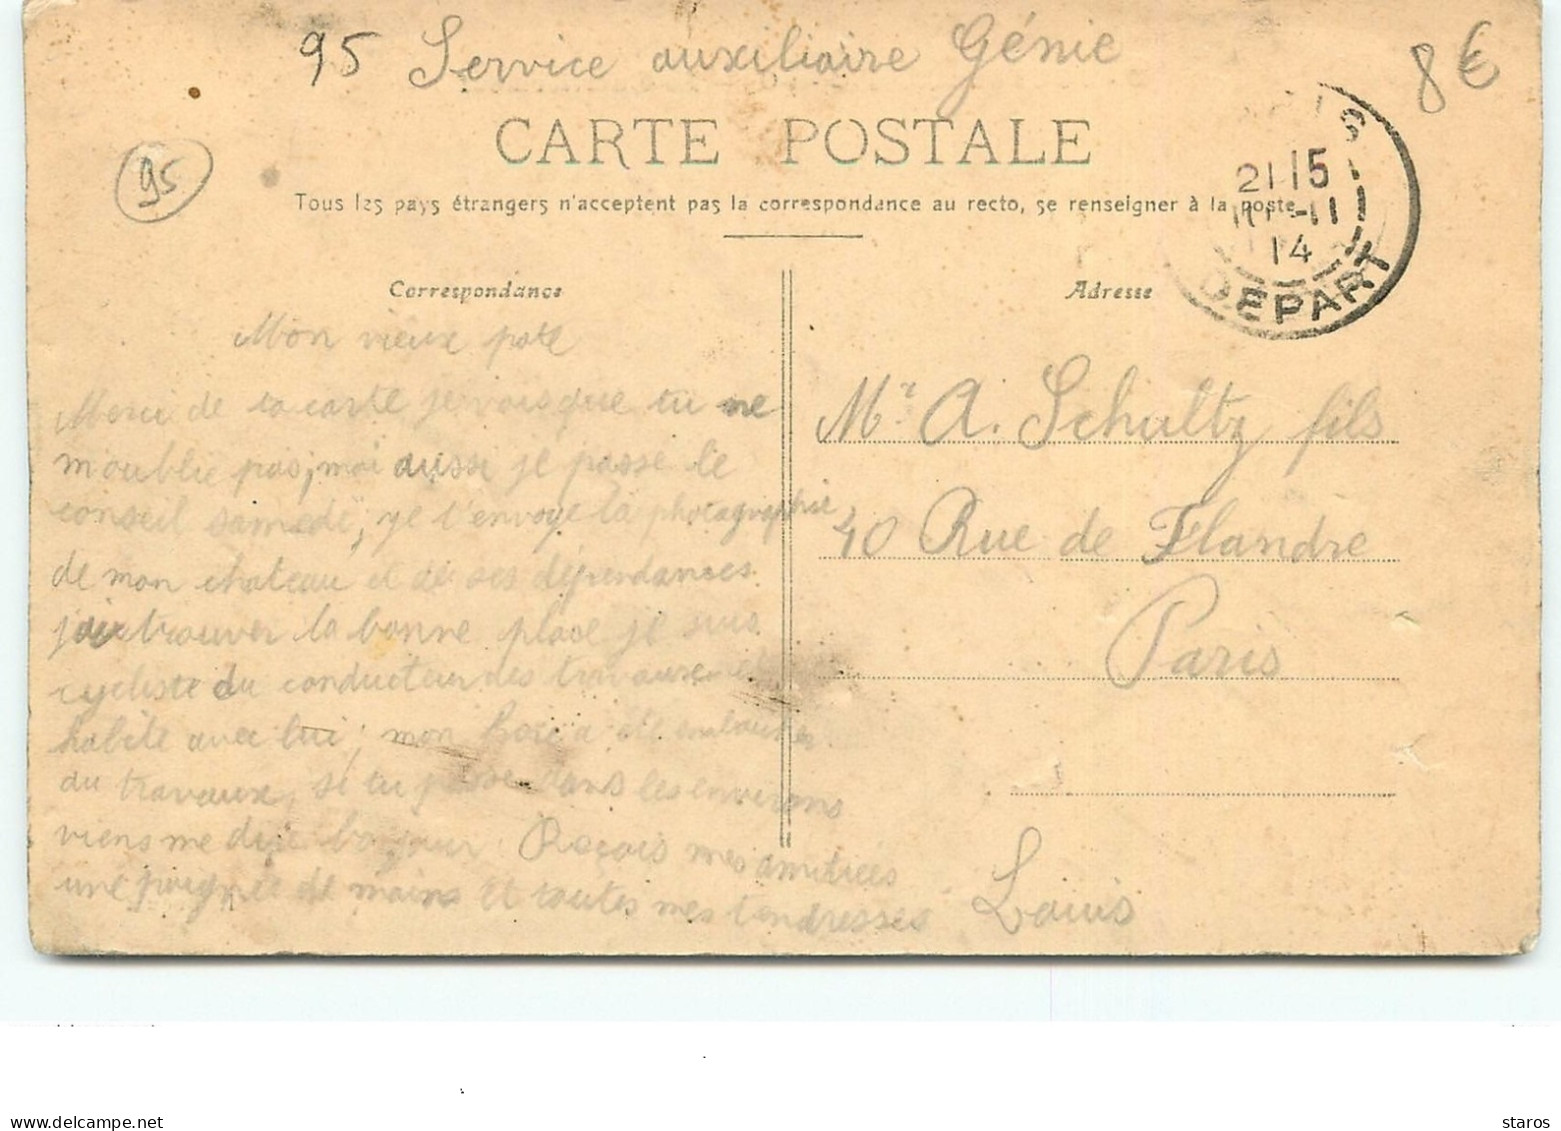 95 Service auxiliaire Génie
8€
95
CARTE POSTALE
Tous les pays étrangers n'acceptent pas la correspondance au recto, se renseigner à la poste
21 15
-11
14
DEPART
Correspondance
Adresse
Mon vieux pote
Merci de ta carte je vois que tu ne
m'oublie pas, moi aussi je passe le
conseil samedi, je t'envoye la photographie
de mon chateau et de ses dépendances
j'ai trouver la bonne place je suis
cycliste du conducteur des travaux et
habite avec lui, mon a été
du travaux, si tu passe dans les environs
viens me dire bonjour Reçois mes amitiées
une poignée de mains et toutes mes tendresses
Louis
Mr A. Schultz fils
40 Rue de Flandre
Paris
www.delcampe.net
staros